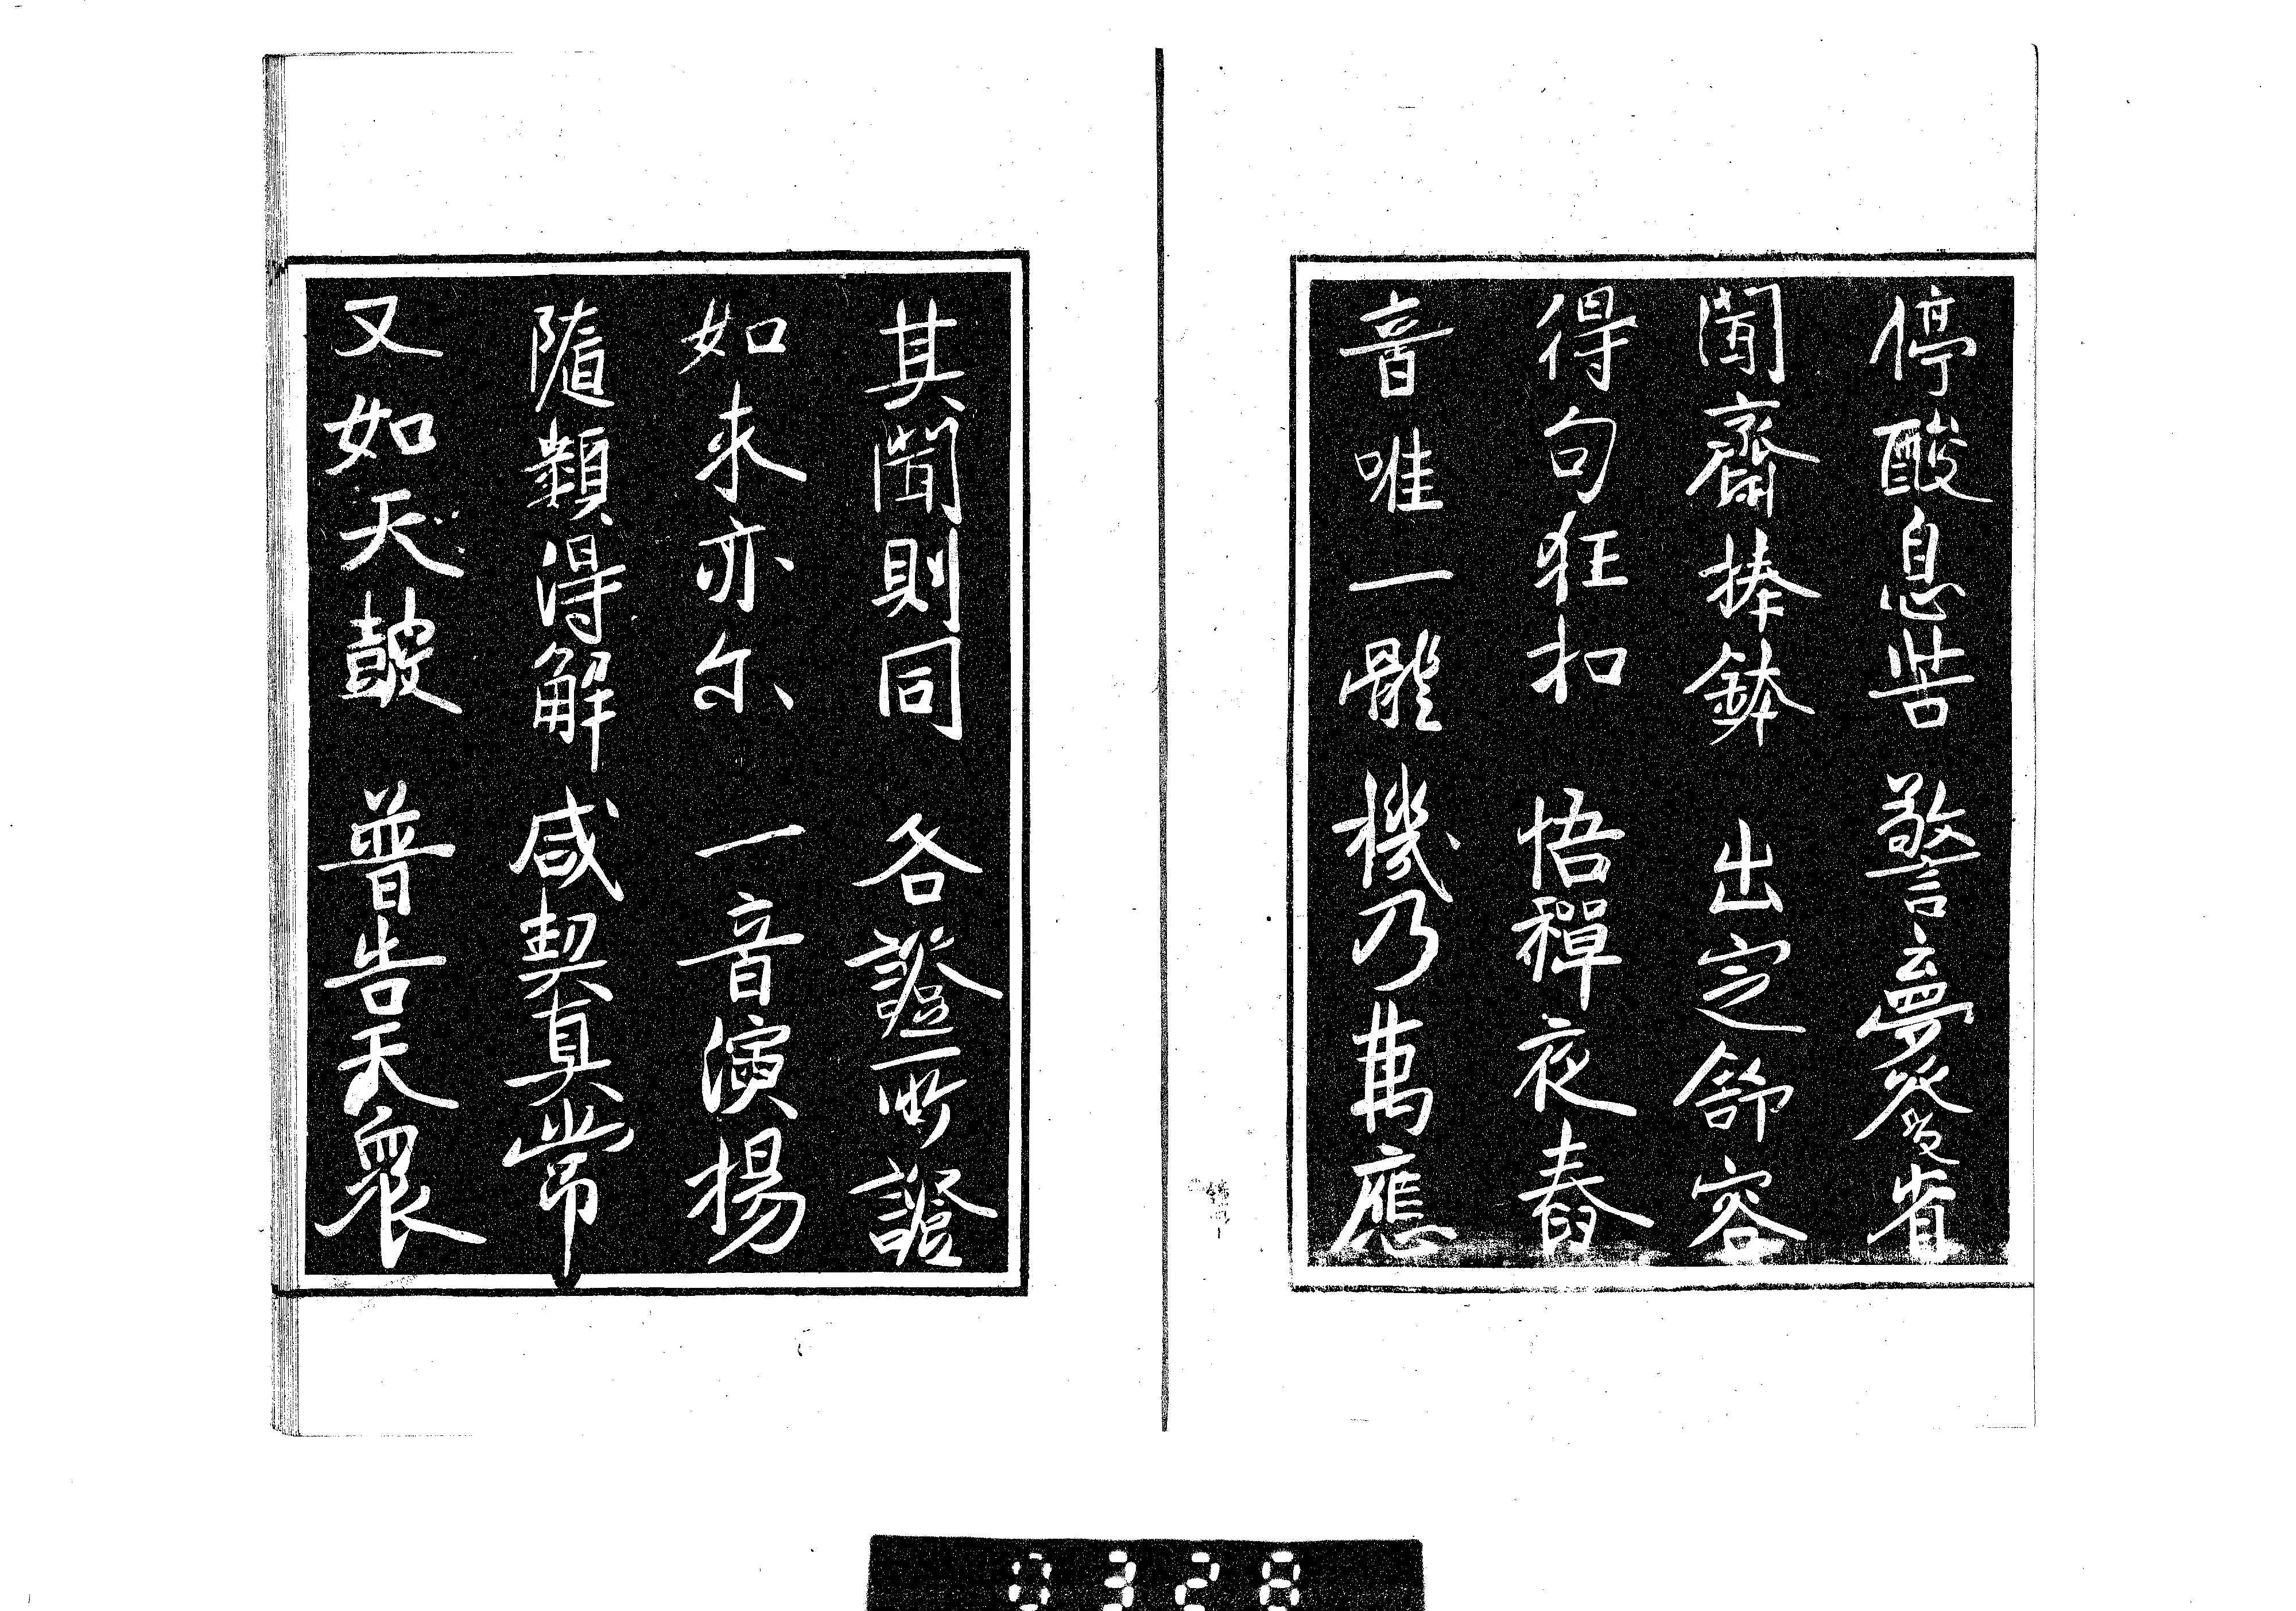 停酸息苦 警夢發省
聞齋捧鉢 出定舒容
得句狂扣 悟禪夜舂
音唯一體 機乃萬應
其聞則同 各證所證
如来亦尔 一音演揚
隨類得解 咸契真常
又如天鼓 普告天衆
0328